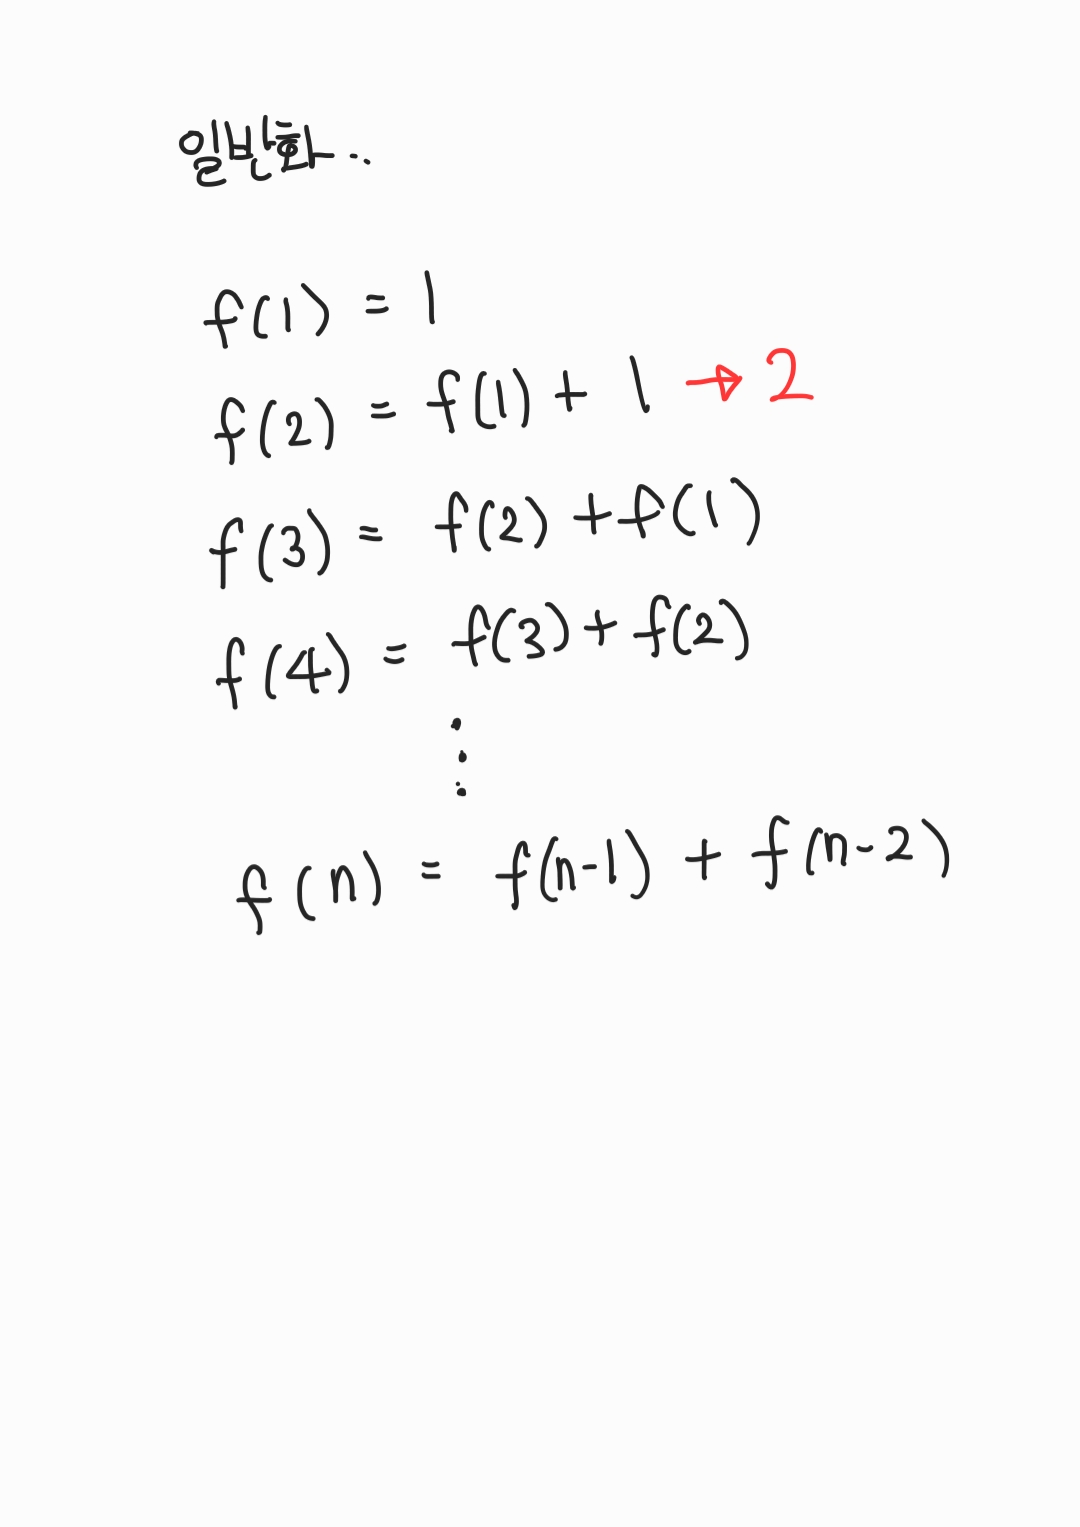 일반화..
f(1) = 1
f(2) = f(1) + 1 → 2
f(3) = f(2) + f(1)
f(4) = f(3) + f(2)
⋮
f(n) = f(n-1) + f(n-2)